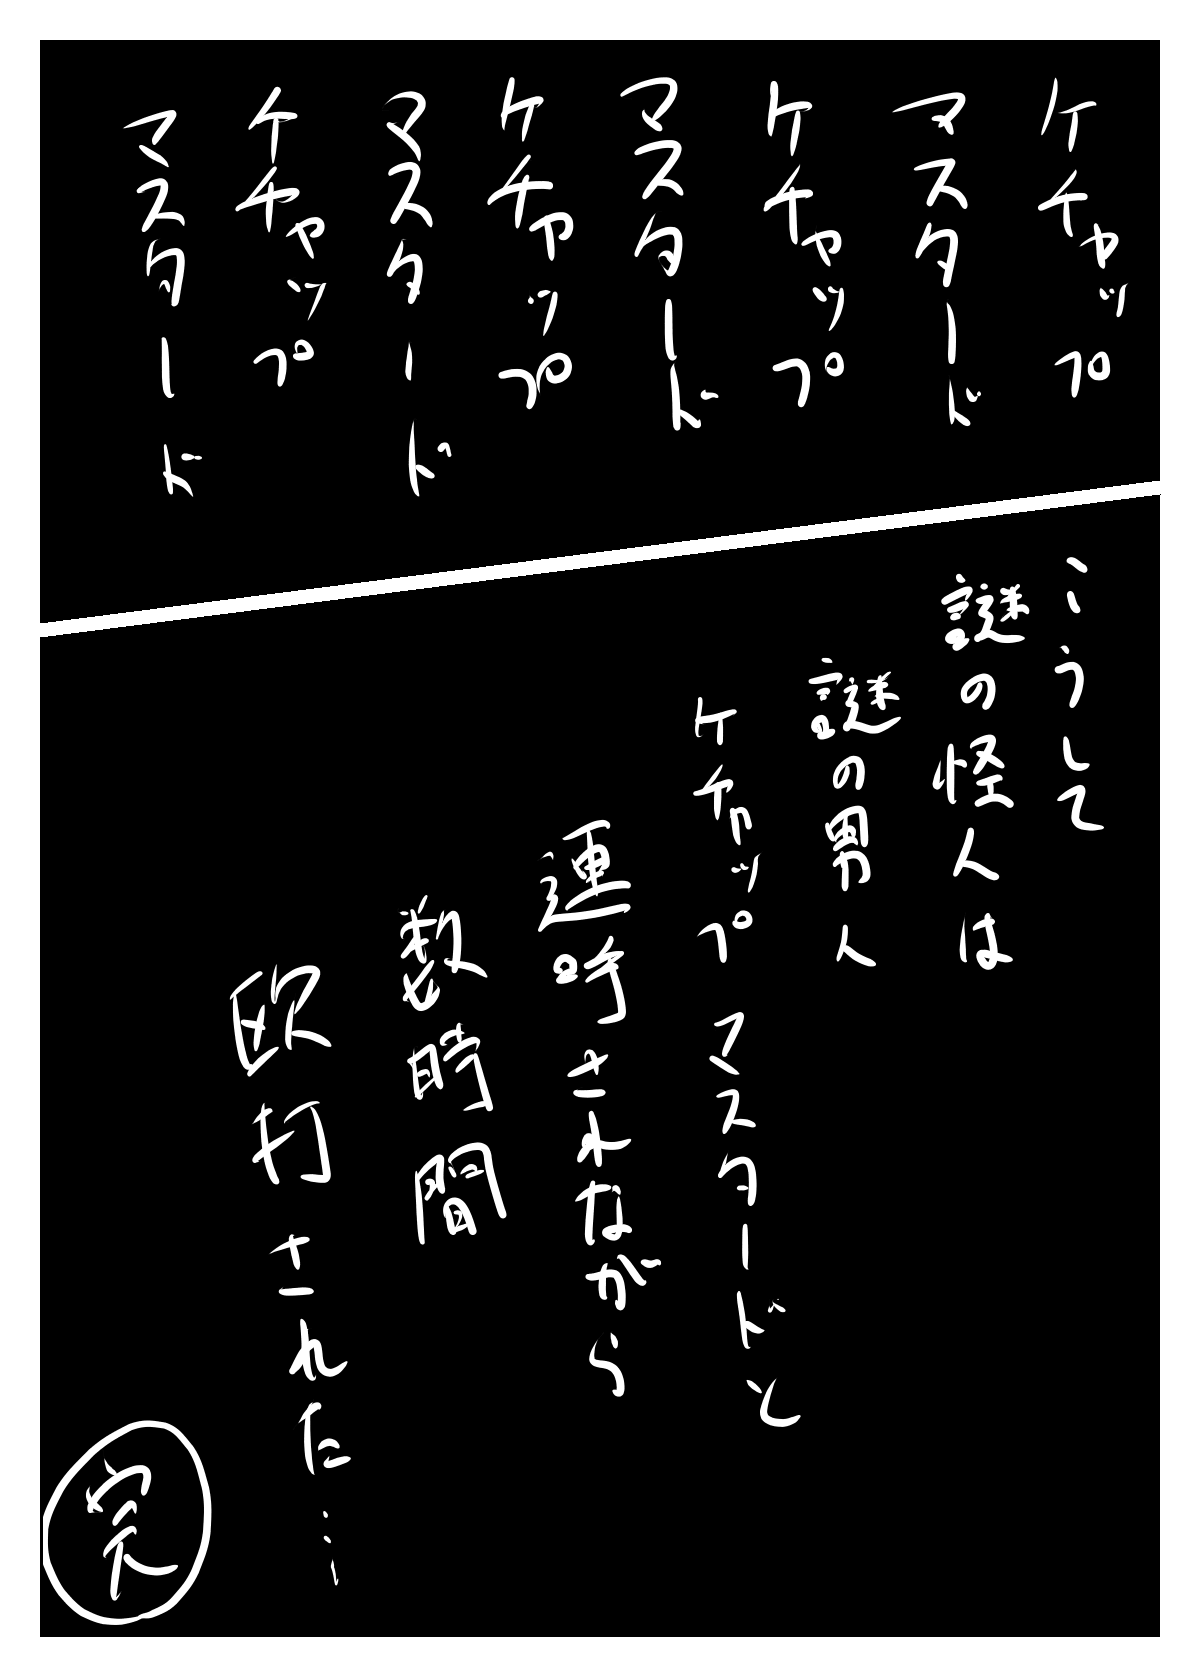 ケチャップ
マスタード
ケチャップ
マスタード
ケチャップ
マスタード
ケチャップ
マスタード
こうして
謎の怪人は
謎の男人
ケチャップマスタードと
連呼されながら
数時間
欧打された…
完